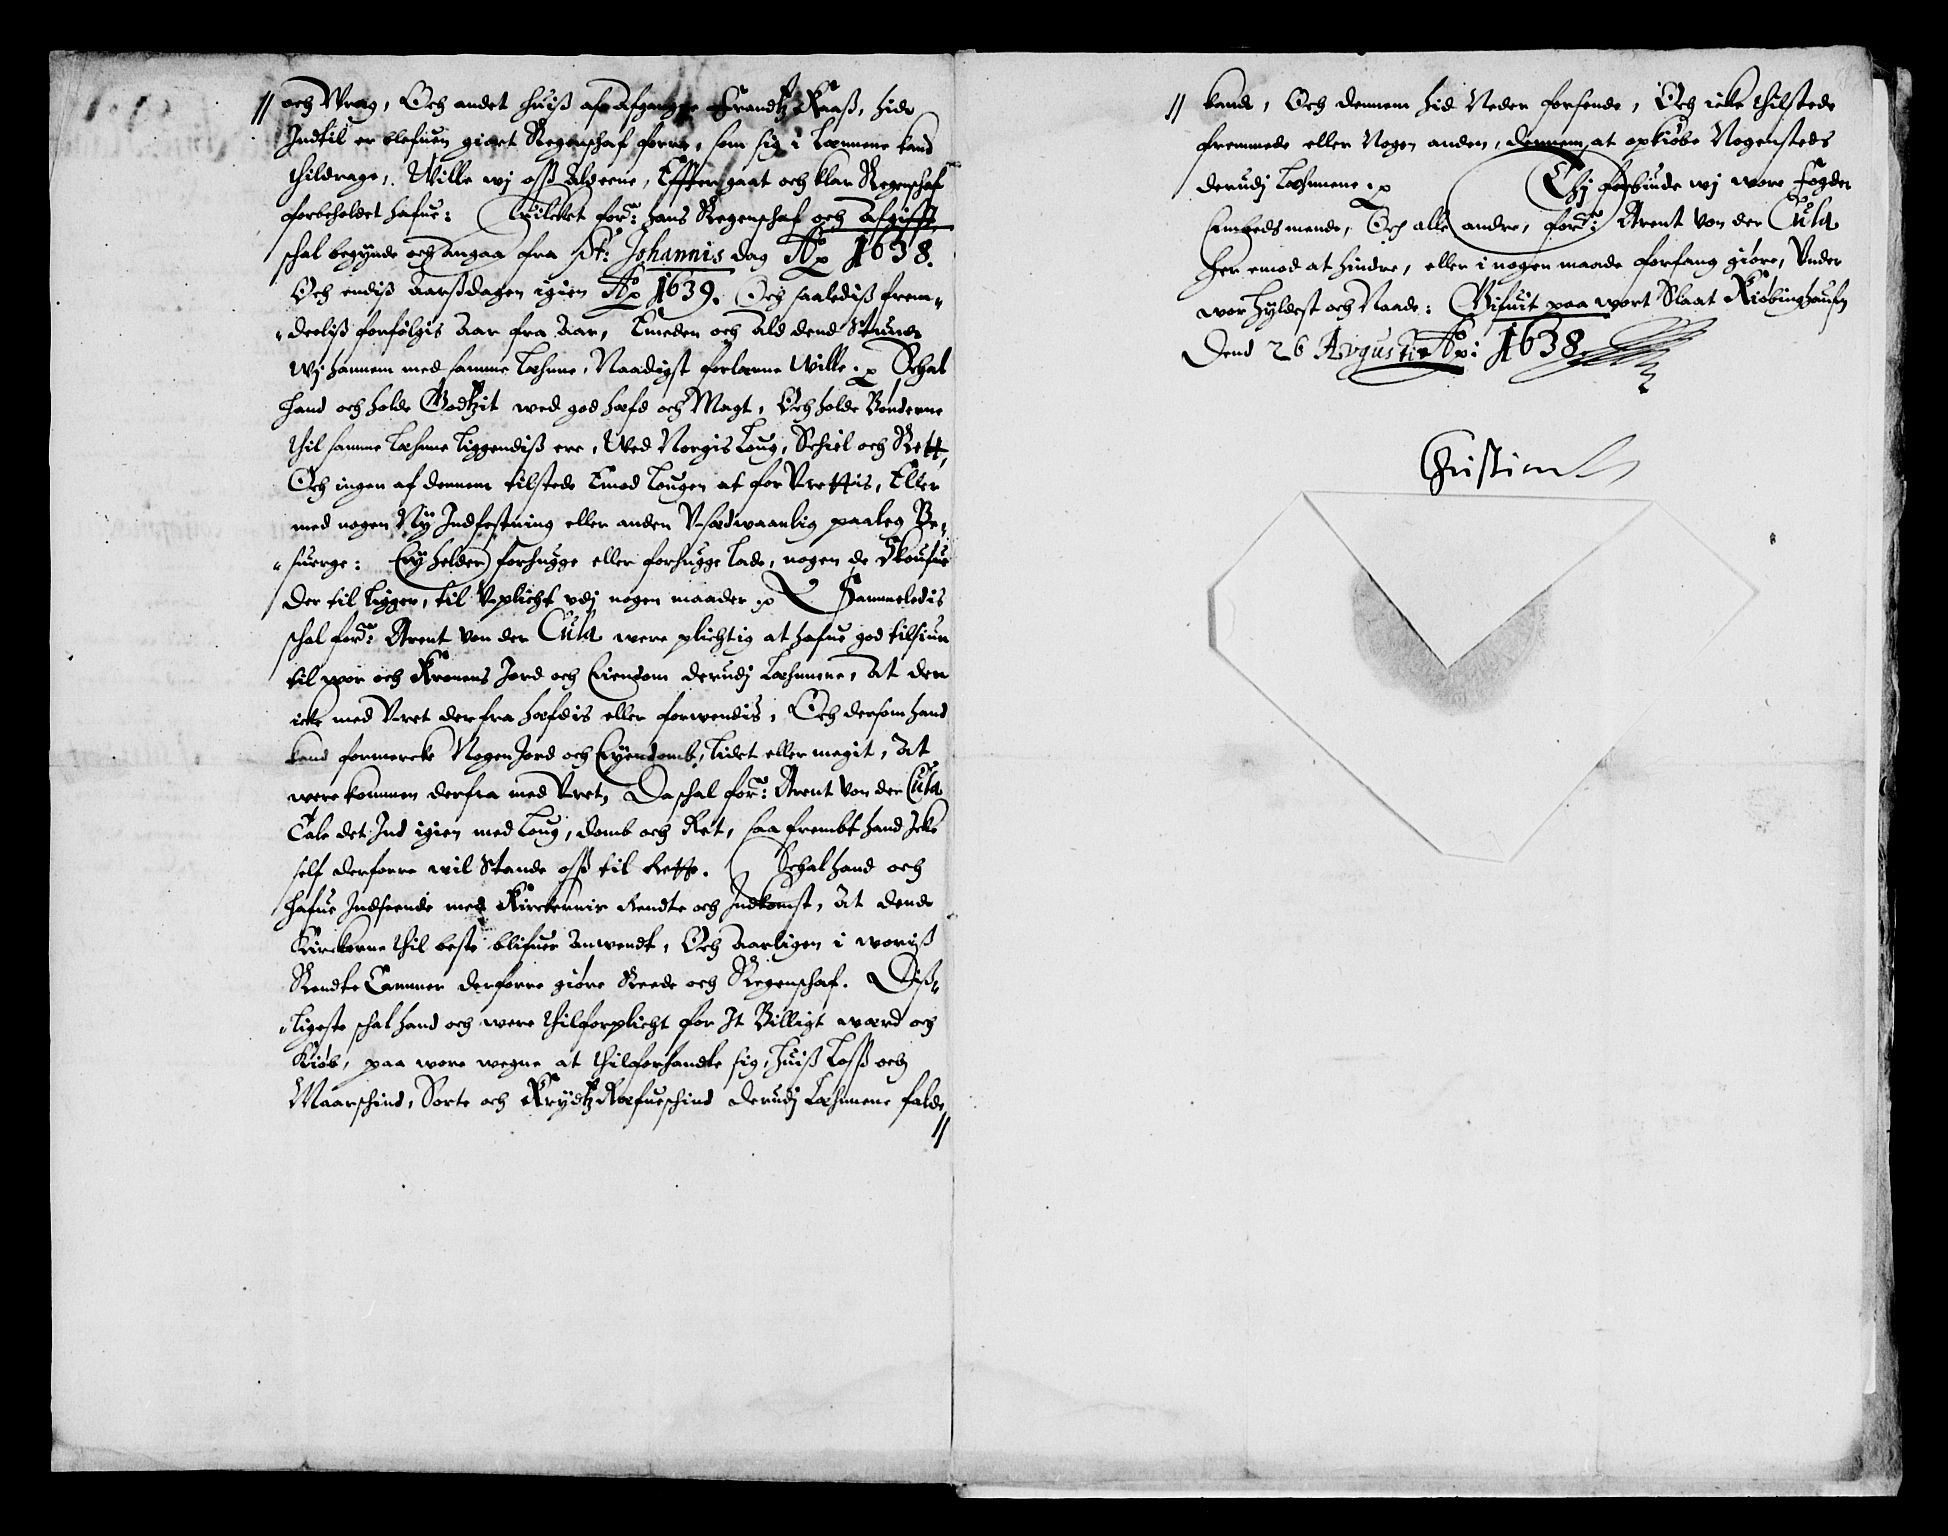 // och Wrag, Och andet huiß af Afgangne Frandtz Kaaß, hide
Indtil er blefuen giort Regenschaf forre, som sig i Læhnene kand
thildrage, Wille wj oß Alleene, Effter gaat och klar Regenschaf
forbeholdet hafue: Huilcket for.ne hans Regenschaf och Afgifft
schal begynde och angaa fra St: Johannis dag Ao 1638.
Och endiß Aarßdagen igien Ao 1639. Och saalediß frem-
-deeliß forfølgis Aar fra Aar, Emeden och Ald dend Stund
Wj hannem med samme Læhne, Naadigst forlænne Wille. Schal
hand och holde Godtzit wed god hæfd och Magt, Och holde Bønderne
thil samme Læhne liggendiß ere, Wed Norgis Loug, Schiel och Rett,
Och ingen af dennem tilstede Emod Lougen at for Vrettis, Eller
med nogen Ny Indfestning eller anden Vsædwaanlig paaleg Be-
-suerge: Ey helder forhugge eller forhugge lade, nogen de Skoufue
der til ligger, til Vplicht vdj nogen maader. Sammeledis
schal for.ne Arent Von der Cula were plichtig at hafue god tilsiun
til wor och Kronens Jord och Eiendom derudj Læhnene, At der
icke med Vret derfra hæfdis eller forwendis, Och dersom hand
kand formercke Nogen Jord och Eyendomb, lidet eller megit, At
were kommen derfra med Vret, Da schal for.ne Arent Von der Cula
Tale det Ind igien med Loug, domb och Ret, saa frembt hand Icke
self derforre wil Stande oß til Rette. Schal hand och
hafue Indseende med Kirckernis Rendte och Indkomst, At dend
Kirckerne thil beste blifuer Anwendt, Och Aarligen i woriß
Rendte Cammer derforre giøre Reede och Regenschaf. Diß-
-ligeste schal hand och were thilforplicht for It Billigt wærd och
Kiøb, paa wore wegne at thilforhandle sig, huiß Loß och
Maarschind, Sorte och Krydtz Ræfueschind derudj Læhnene falde
//
// kand, Och dennem hid Neder forsende, Och icke thilstede
fremmede eller Nogen anden, dennem at opkiøbe Nogensteds
derudj Læhnene. Thj forbiude wj wore Fogder
Embedsmende, Och alle andre, for.ne Arent Von der Cula
her emod at hindre, eller i nogen maade forfang giøre, Vnder
wor hyldest och Naade: Gifuit paa wort Slaat Kiøbinghaufn
Dend 26 Avgusti Ao: 1638
Christian